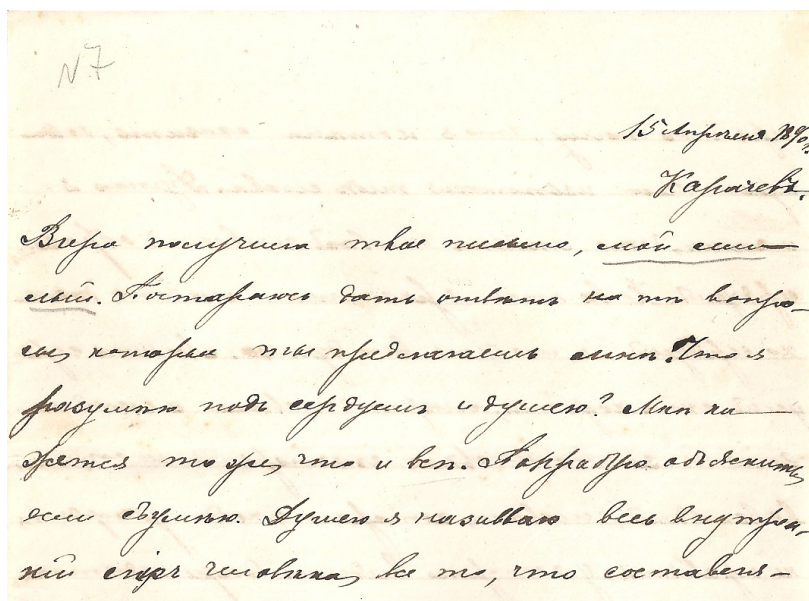 N 7
15 Апреля 1890 г.
Карачевъ.
Вчера получила твое письмо, мой ми-
лый. Постараюсь дать отвѣтъ на тѣ вопро-
сы, которые ты предлагаешь мнѣ. Что я
разумѣю подъ сердцемъ и душею? Мнѣ ка-
жется то же, что и всѣ. Попробую объяснить,
если съумѣю. Душею я называю весь внутрен-
ній міръ человѣка, все то, что составля-